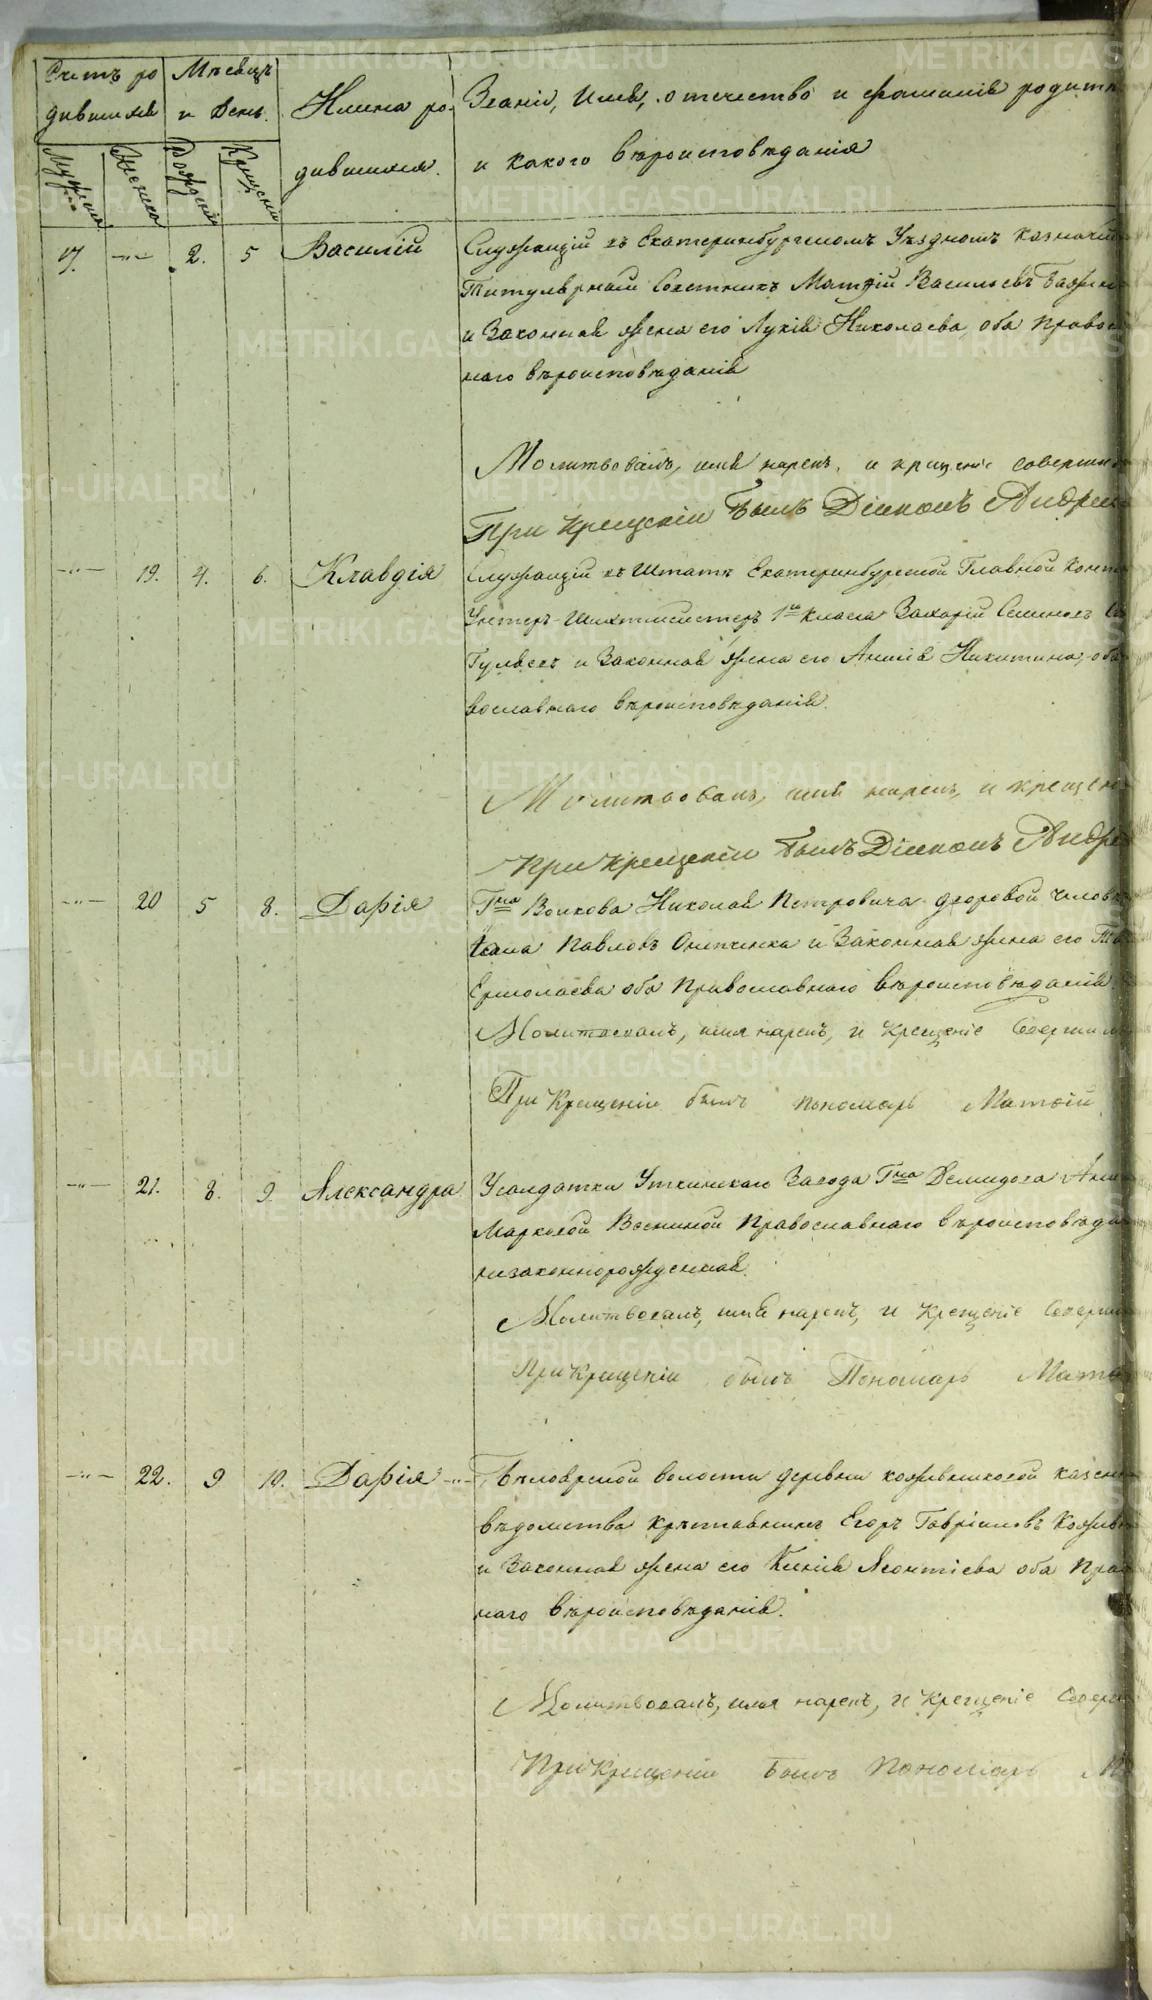 Счетъ ро
дившихся
Мѣсяцъ
и День.
Имена ро-
дившихся.
Званіе, Имя, отечество и фамилія родите
и какого вѣроисповѣданія
Мужска
Женска
Рожденія
Крещенія
17. —"— 2. 5 Василій
Служащій въ Екатеринбургскомъ Уѣздномъ Казначей
Титулярный Совѣтникъ Матѳій Васильевъ
и Законная жена его Лукія Николаева, оба Правос
наго вѣроисповѣданія
Молитвовалъ, имя нарекъ, и крещеніе совершил
При Крещеніи былъ Діаконъ Андрей
—"— 19. 4. 6. Клавдія
Служащій въ Штатѣ Екатеринбургской Главной Конто
Унтеръ-Шихтмейстеръ 1го класса Захарій Семеновъ
и Законная жена его Анисія Никитина, оба
вославнаго вѣроисповѣданія.
Молитвовалъ, имя нарекъ, и крещен
При Крещеніи былъ Діаконъ Андре
—"— 20 5 8. Дарія
Гна Волкова Николая Петровича дворовой человѣк
Павловъ и Законная жена его
Ермолаева оба Православнаго вѣроисповѣданія.
Молитвовалъ, имя нарекъ, и Крещеніе Совершил
При Крещеніи былъ пономарь Матѳій
—"— 21. 8. 9. Александра
У солдатки Уткинскаго Завода Гна Демидова
Марковой Православнаго вѣроисповѣда
незаконнорожденная.
Молитвовалъ, имя нарекъ, и Крещеніе Соверш
При Крещеніи былъ Пономарь Мат
—"— 22. 9 10. Дарія —"—
Бѣлоярской волости деревни Кожевниковой казен
вѣдомства крестьянинъ Егоръ Гавріиловъ Кожев
и Законная жена его Ксенія Леонтіева оба Пра
наго вѣроисповѣданія.
Молитвовалъ, имя нарекъ, и Крещеніе Соверш
При Крещеніи былъ Пономарь М